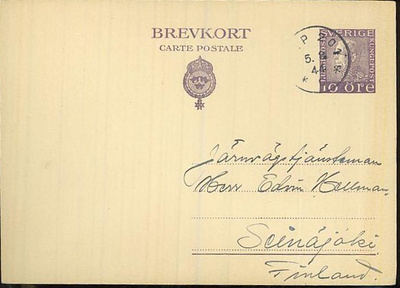 BREVKORT
CARTE POSTALE
SVERIGE
10 ÖRE
Järnvägstjänsteman
Herr Edvin Hellman
Seinäjoki
Finland.